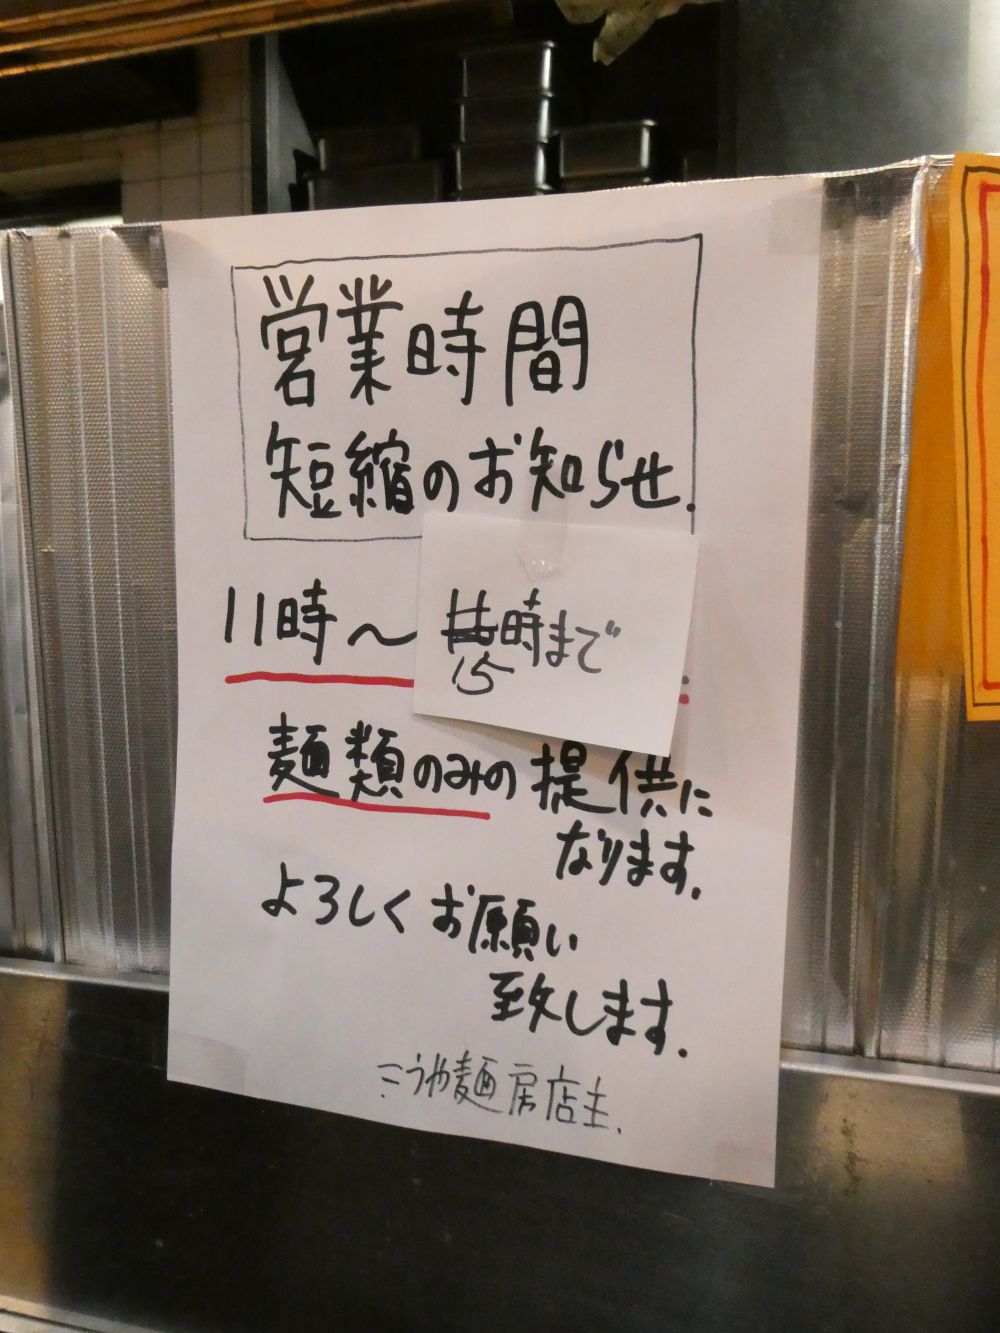 営業時間
短縮のお知らせ.
11時〜
時まで
15
麺類のみの提供に
なります.
よろしくお願い
致します.
こうや麺房店主.